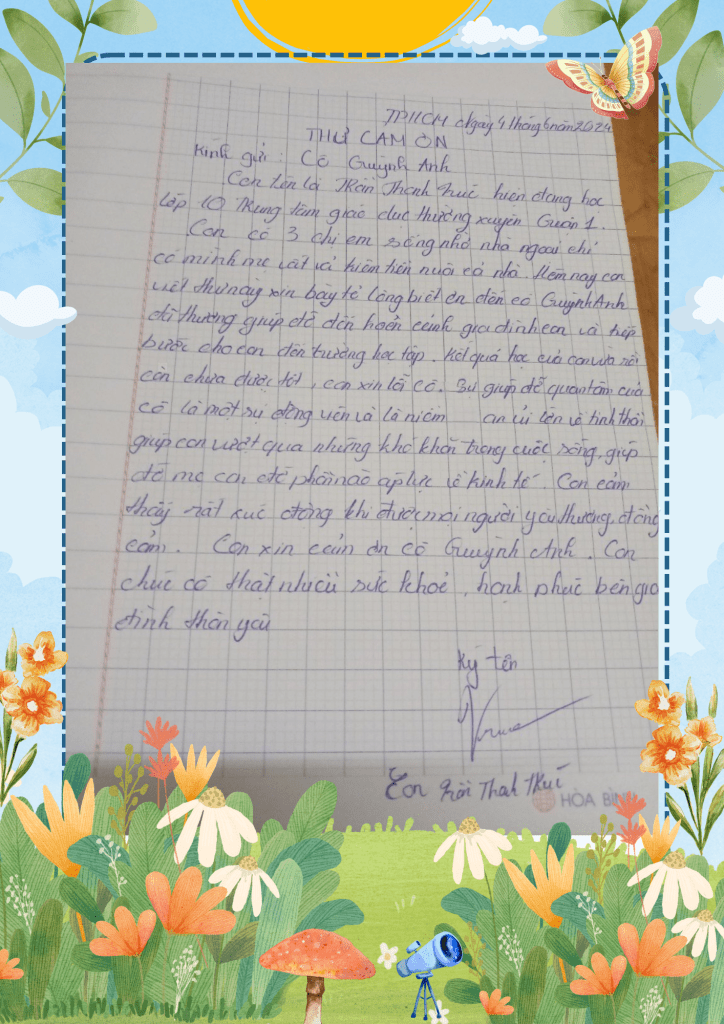 TPHCM ngày 4 tháng 6 năm 2024
THƯ CẢM ƠN
Kính gửi : Cô Quỳnh Anh
Con tên là Trần Thanh Trúc hiện đang học
lớp 10 Trung tâm giáo dục thường xuyên Quận 1.
Con có 3 chị em sống nhờ nhà ngoại chỉ
có mình mẹ vất vả kiếm tiền nuôi cả nhà. Hôm nay con
viết thư này xin bày tỏ lòng biết ơn đến cô Quỳnh Anh
đã thương giúp đỡ đến hoàn cảnh gia đình con và tiếp
bước cho con đến trường học tập. Kết quả học của con vừa rồi
còn chưa được tốt, con xin lỗi cô. Sự giúp đỡ quan tâm của
cô là một sự động viên và là niềm an ủi lớn về tinh thần
giúp con vượt qua những khó khăn trong cuộc sống, giúp
đỡ mẹ con đỡ phần nào áp lực về kinh tế. Con cảm
thấy rất xúc động khi được mọi người yêu thương, đồng
cảm. Con xin cảm ơn cô Quỳnh Anh. Con
chúc cô thật nhiều sức khoẻ, hạnh phúc bên gia
đình thân yêu
Ký tên
Trúc
Con Trần Thanh Trúc
HÒA BÌNH